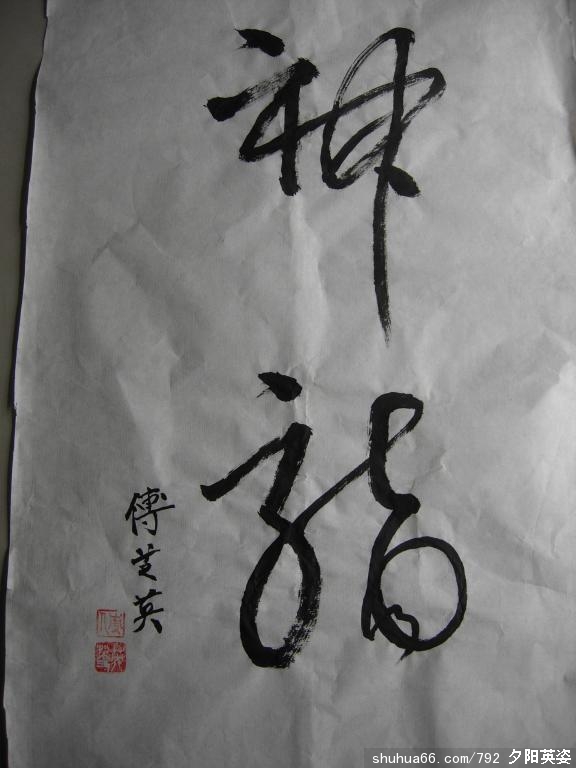 神龍
傅芝英
shuhua66.com/792 夕阳英姿